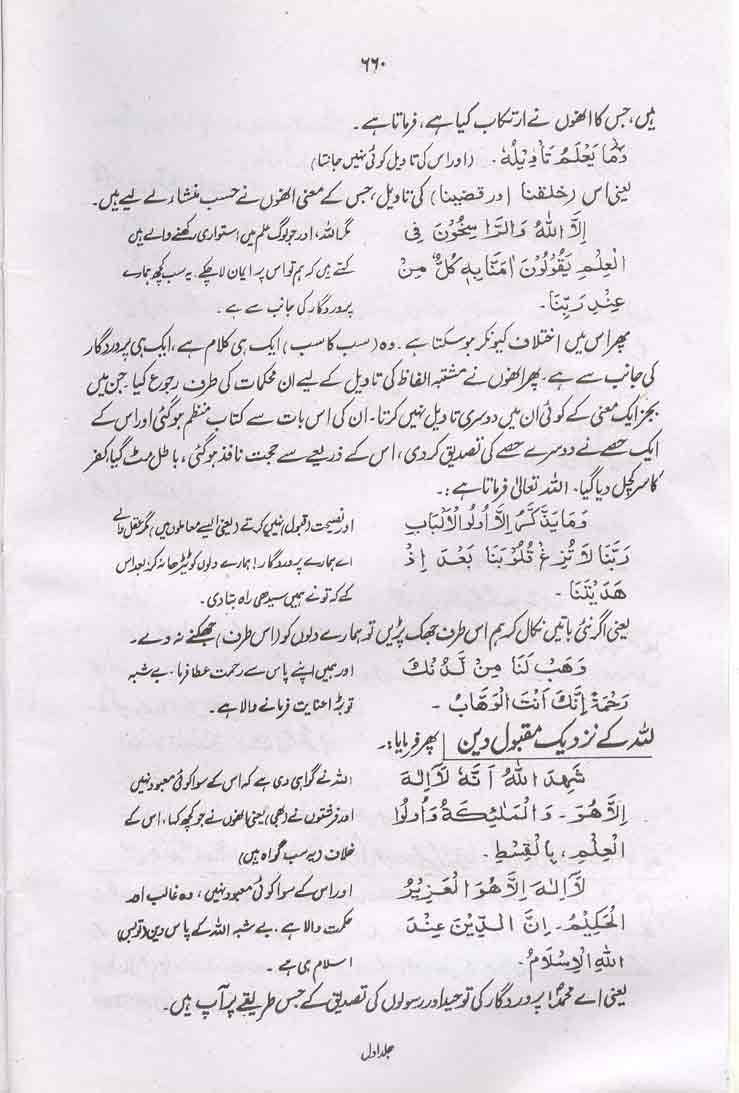 ۶۶۰
ہیں، جس کا انھوں نے ارتکاب کیا ہے، فرماتا ہے۔
وَمَا یَعْلَمُ تَأْوِیْلَہٗ۔ (اور اس کی تاویل کوئی نہیں جانتا)
یعنی اس (خلقنا اور قضینا) کی تاویل، جس کے معنی انھوں نے حسب منشار لے لیے ہیں۔
اِلَّا اللّٰہُ وَالرَّاسِخُوْنَ فِی مگر اللہ، اور جو لوگ علم میں استواری رکھنے والے ہیں
الْعِلْمِ یَقُوْلُوْنَ اٰمَنَّا بِہٖ کُلٌّ مِنْ کہتے ہیں کہ ہم تو اس پر ایمان لا چکے۔ یہ سب کچھ ہمارے
عِنْدِ رَبِّنَا۔ پروردگار کی جانب سے ہے۔
پھر اس میں اختلاف کیونکر ہو سکتا ہے۔ وہ (سب کا سب) ایک ہی کلام ہے، ایک ہی پروردگار
کی جانب سے ہے۔ پھر انھوں نے مشتبہ الفاظ کی تاویل کے لیے ان محکمات کی طرف رجوع کیا۔ جن میں
بجز ایک معنی کے کوئی ان میں دوسری تاویل نہیں کرتا۔ ان کی اس بات سے کتاب منظم ہوگئی اور اس کے
ایک حصے نے دوسرے حصے کی تصدیق کر دی، اس کے ذریعے سے حجت نافذ ہوگئی، باطل مٹ گیا، کفر
کا سر کچل دیا گیا۔ اللہ تعالیٰ فرماتا ہے:۔
وَمَا یَذَّکَّرُ اِلَّا اُولُوا الْاَلْبَابِ اور نصیحت (قبول) نہیں کرتے (یعنی ایسے معاملوں میں) مگر عقل والے
رَبَّنَا لَا تُزِغْ قُلُوْبَنَا بَعْدَ اِذْ اے ہمارے پروردگار! ہمارے دلوں کو ٹیڑھا نہ کر، بعد اس
ھَدَیْتَنَا۔ کے کہ تو نے ہمیں سیدھی راہ بتا دی۔
یعنی اگر نئی باتیں نکال کر ہم اس طرف جھک پڑیں تو ہمارے دلوں کو (اس طرف) جھکنے نہ دے۔
وَھَبْ لَنَا مِنْ لَّدُنْکَ اور ہمیں اپنے پاس سے رحمت عطا فرما۔ بے شبہ
رَحْمَۃً اِنَّکَ اَنْتَ الْوَھَّابُ۔ تو بڑا عنایت فرمانے والا ہے۔
للہ کے نزدیک مقبول دین پھر فرمایا:۔
شَھِدَ اللّٰہُ اَنَّہٗ لَا اِلٰہَ اللہ نے گواہی دی ہے کہ اس کے سوا کوئی معبود نہیں
اِلَّا ھُوَ۔ وَالْمَلٰئِکَۃُ وَاُولُوا اور فرشتوں نے (بھی) یعنی انھوں نے جو کچھ کہا، اس کے
الْعِلْمِ، بِالْقِسْطِ۔ خلاف (یہ سب گواہ ہیں)
لَا اِلٰہَ اِلَّا ھُوَ الْعَزِیْزُ اور اس کے سوا کوئی معبود نہیں، وہ غالب اور
الْحَکِیْمُ۔ اِنَّ الدِّیْنَ عِنْدَ حکمت والا ہے۔ بے شبہ اللہ کے پاس دین (تو بس)
اللّٰہِ الْاِسْلَامُ۔ اسلام ہی ہے۔
یعنی اے محمدؐ! پروردگار کی توحید اور رسولوں کی تصدیق کے جس طریقے پر آپ ہیں۔
جلد اول